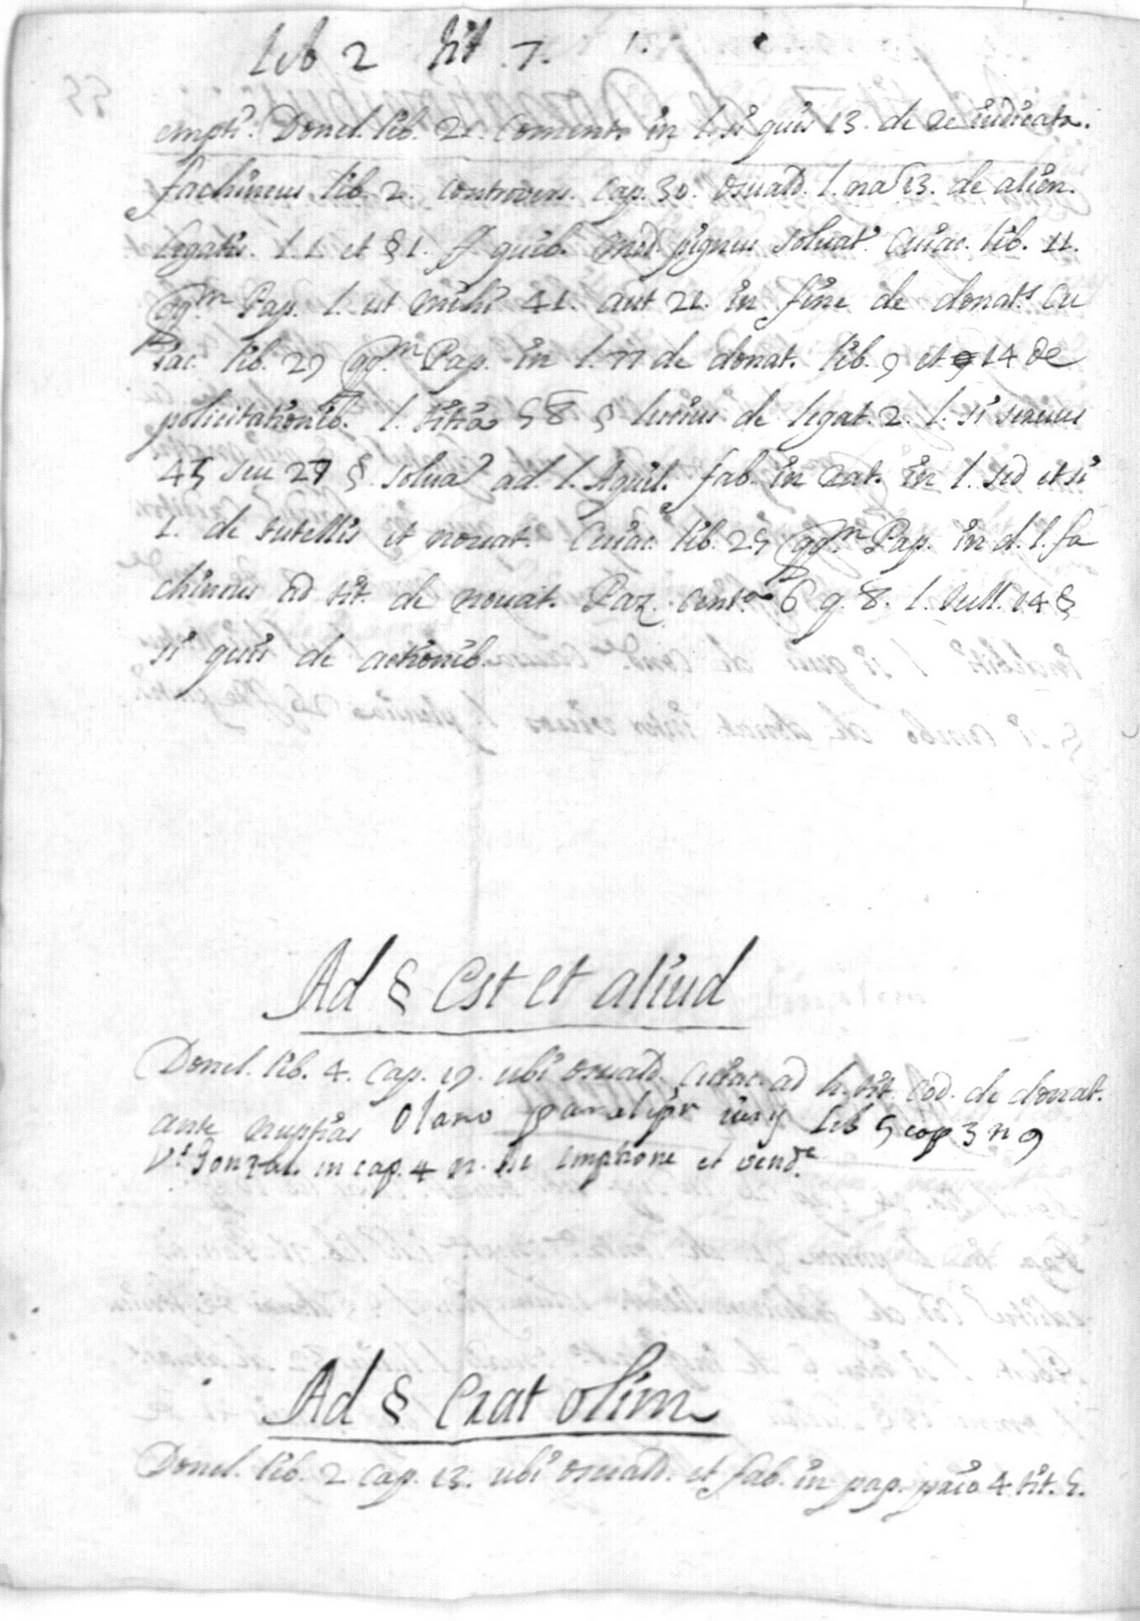 Lib 2 tit 7.
empti. Donel. lib. 21. Coment. in l. si quis 13. de re iudicata.
fachineus lib. 2. controvers. cap. 30. osuald. l. 13. de alien.
legatis. l. 1. et § 1. ff quib. mod. pignus soluat. Cuiac. lib. 11.
qq.m Pap. l. ut mihi 41. aut 21. in fine de donat. Cu
iac. lib. 29 qq.m Pap. in l. 77 de donat. lib. 9 et 14 de
policitationib. l. titia 58 § lucius de legat. 2. l. si seruus
45 seu 27 § solua ad l. Aquil. fab. in rat. in l. sed et si
1. de tutellis et nouat. Cuiac. lib. 25 qq.m Pap. in d. l. fa
chineus ad tit. de nouat. Paz. 6 q. 8. l. 14 §
si quis de actionib.
Ad § Est et aliud
Donel. lib. 4. cap. 17. ubi osuald. Cuiac. ad h. tit. Cod. de donat.
ante nuptias Olano iury Lib 5 cap 3 n 9
Vt Gonzal. in cap. 4 n. de emptione et vend.e
Ad § Erat olim
Donel. lib. 2 cap. 13. ubi osuald. et fab. in pap. 4 tit. 5.